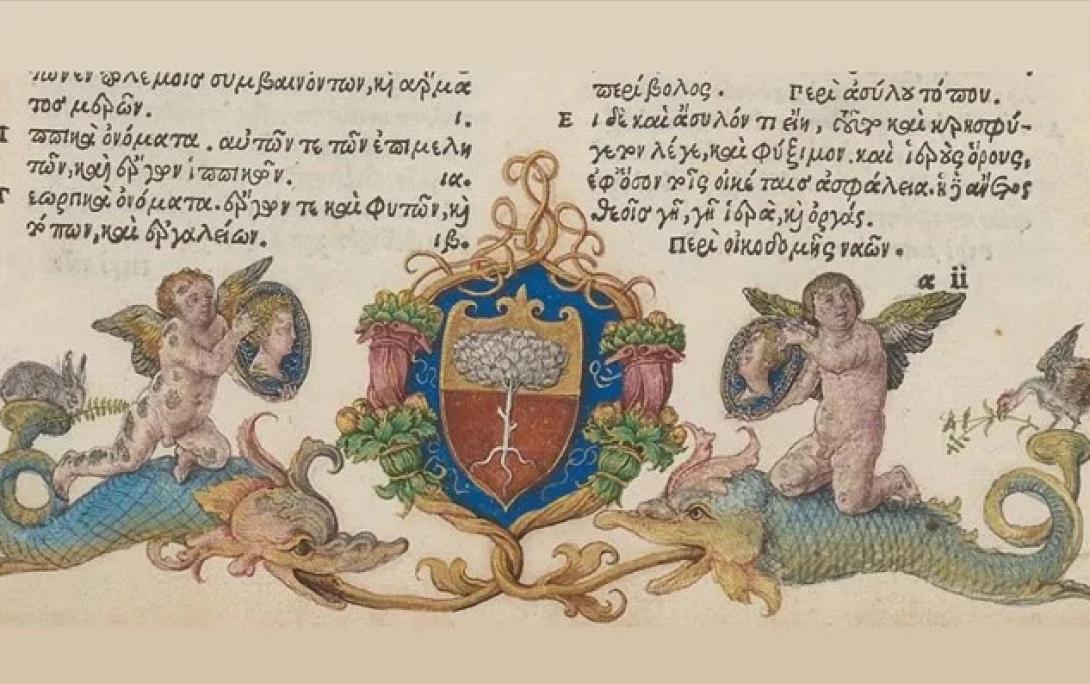 πολέμοις συμβαινόντων, καὶ ἅρμα
τος μερῶν. ι.
Ι ππικὰ ὀνόματα. αὐτῶν τε τῶν ἐπιμελη
τῶν, καὶ ἔργων ἱππικῶν. ια.
Γ εωργικὰ ὀνόματα. ἔργων τε καὶ φυτῶν, καὶ
τόπων, καὶ ἐργαλείων. ιβ.
περίβολος. Περὶ ἀσύλου τόπου.
Ε ἰ δὲ καὶ ἄσυλόν τι εἴη, καὶ κρησφύ-
γετον λέγε, καὶ φύξιμον. καὶ ἱεροὺς ὅρους,
ἐφ' ὅσον τοῖς οἰκέταις ἀσφάλεια. ἡ ἄνετος
θεοῖς γῆ, γῆ ἱερὰ, καὶ ὀργάς.
Περὶ οἰκοδομῆς ναῶν.
α ii